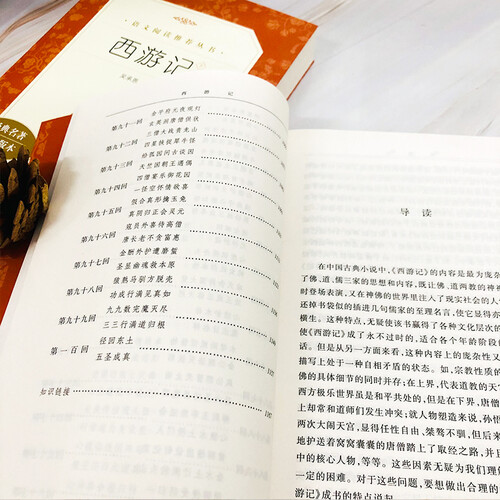 语文阅读推荐丛书
西游记
吴承恩
典名著
西游记
金平府元夜观灯
第九十一回 玄英洞唐僧供状
三僧大战青龙山
第九十二回 四星挟捉犀牛怪
给孤园问古谈因
第九十三回 天竺国朝王遇偶
四僧宴乐御花园
第九十四回 一怪空怀情欲喜
假合真形擒玉兔
第九十五回 真阴归正会灵元
寇员外喜待高僧
第九十六回 唐长老不贪富惠
金酬外护遭魔蜇
第九十七回 圣显幽魂救本原
猿熟马驯方脱壳
第九十八回 功成行满见真如
九九数完魔灭尽
第九十九回 三三行满道归根
径回东土
第一百回 五圣成真
知识链接
导读
在中国古典小说中,《西游记》的内容是最为庞杂
了佛、道、儒三家的思想和内容,既让佛、道两教的神
时登场表演,又在神佛的世界里注入了现实社会的人
还掉书袋似的插进几句儒家的至理名言,使它显得亦
横生。这种特点,无疑使该书赢得了各种文化层次的
使《西游记》成了永不过时的,适合各个年龄阶段
话。但是从另一方面来看,这种内容上的庞杂性又
描写上处于一种自相矛盾的状态。如,宗教性质的
佛的具体细节的同时并存;在上界,代表道教的天
西方极乐世界虽是和平共处的,但是在下界,唐僧
上却常和道师们发生冲突;就人物塑造来说,孙悟
两次大闹天宫,显得任性自由、桀骜不驯,但后来
地护送着窝窝囊囊的唐僧踏上了取经之路,并且
中的核心人物,等等。这些因素无疑为我们理解
一定的困难。对于这些问题,要想做出合理的
游记》成书的特点说起。